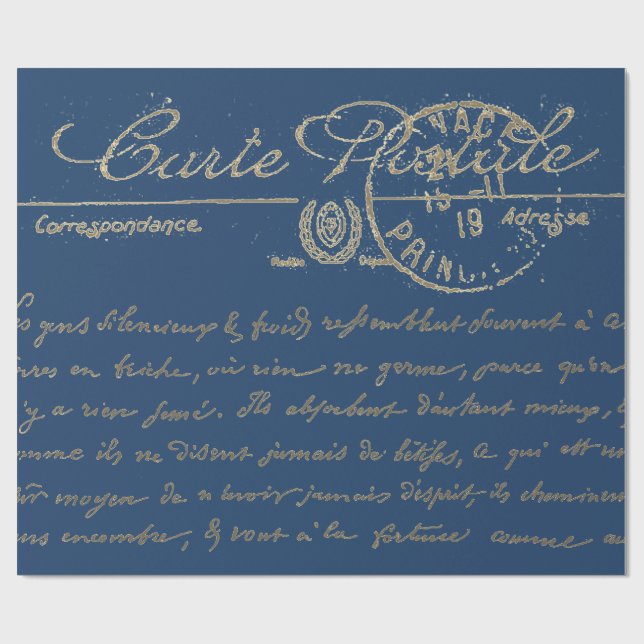 Carte Postale
Correspondance
Adresse
NACY
15 - 11
19
PRINL
es gens silencieux & froids ressemblent souvent à ce
rres en friche, où rien ne germe, parce qu'on
'y a rien semé. Ils absorbent d'autant mieux,
omme ils ne disent jamais de bêtises, ce qui est un
moyen de n'avoir jamais d'esprit, ils cheminen
ns encombre, & vont à la fortune comme au